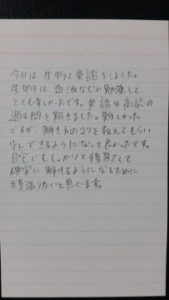 今日は生物と英語をしました。
生物は血液などの勉強して
とても楽しかったです。英語は高認の
過去問を解きました。難しかった
ですが、解き方のコツを教えてもらい
少しできるようになって良かったです。
自宅でもしっかりと復習して
確実に解けるようになるために
頑張りたいと思います。